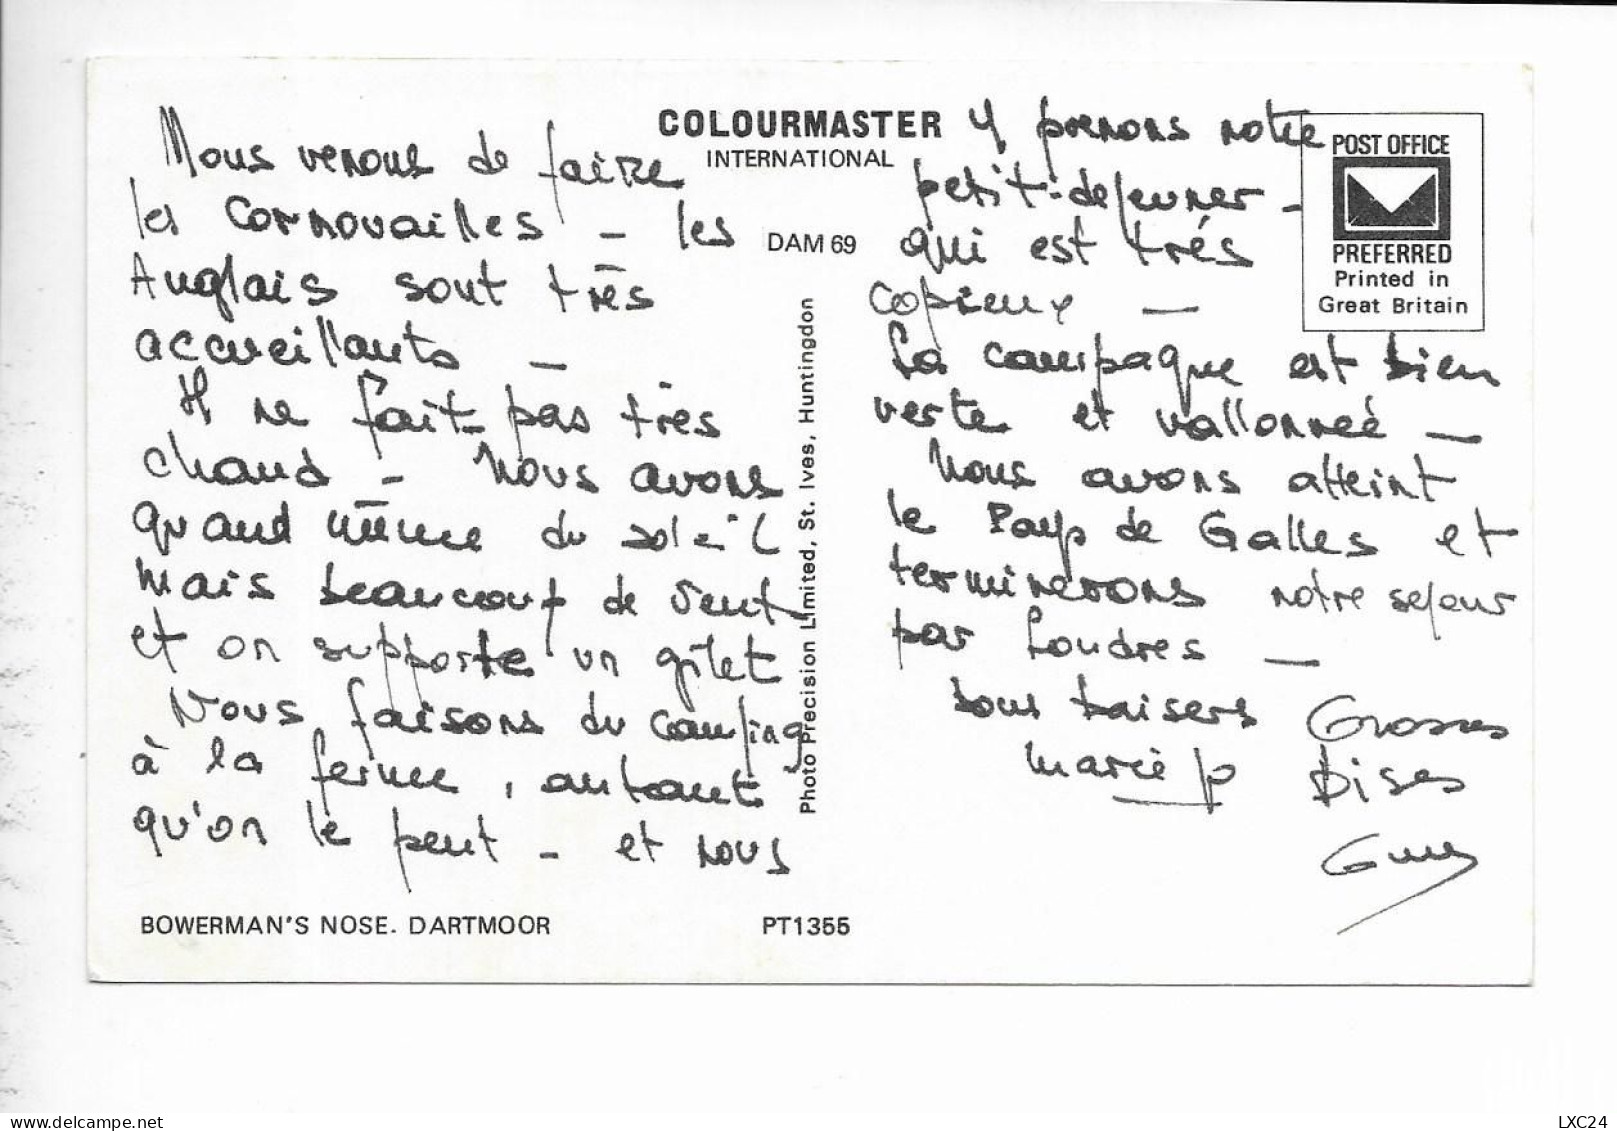 Nous venons de faire
les Cornouailles - les
Anglais sont très
accueillants -
Il ne fait pas très
chaud - Nous avons
quand même du soleil
mais beaucoup de vent
et on supporte un gilet
Nous faisons du camping
à la ferme, autant
qu'on le peut - et nous
BOWERMAN'S NOSE. DARTMOOR
COLOURMASTER
INTERNATIONAL
DAM 69
Photo Precision Limited, St. Ives, Huntingdon
PT1355
y prenons notre
petit-dejeuner -
qui est très
copieux -
La campagne est bien
verte et vallonneé -
Nous avons atteint
le Pays de Galles et
terminerons notre sejour
par Londres -
bons baisers
Marie p
Grosses
Bises
Guy
POST OFFICE
PREFERRED
Printed in
Great Britain
LXC24